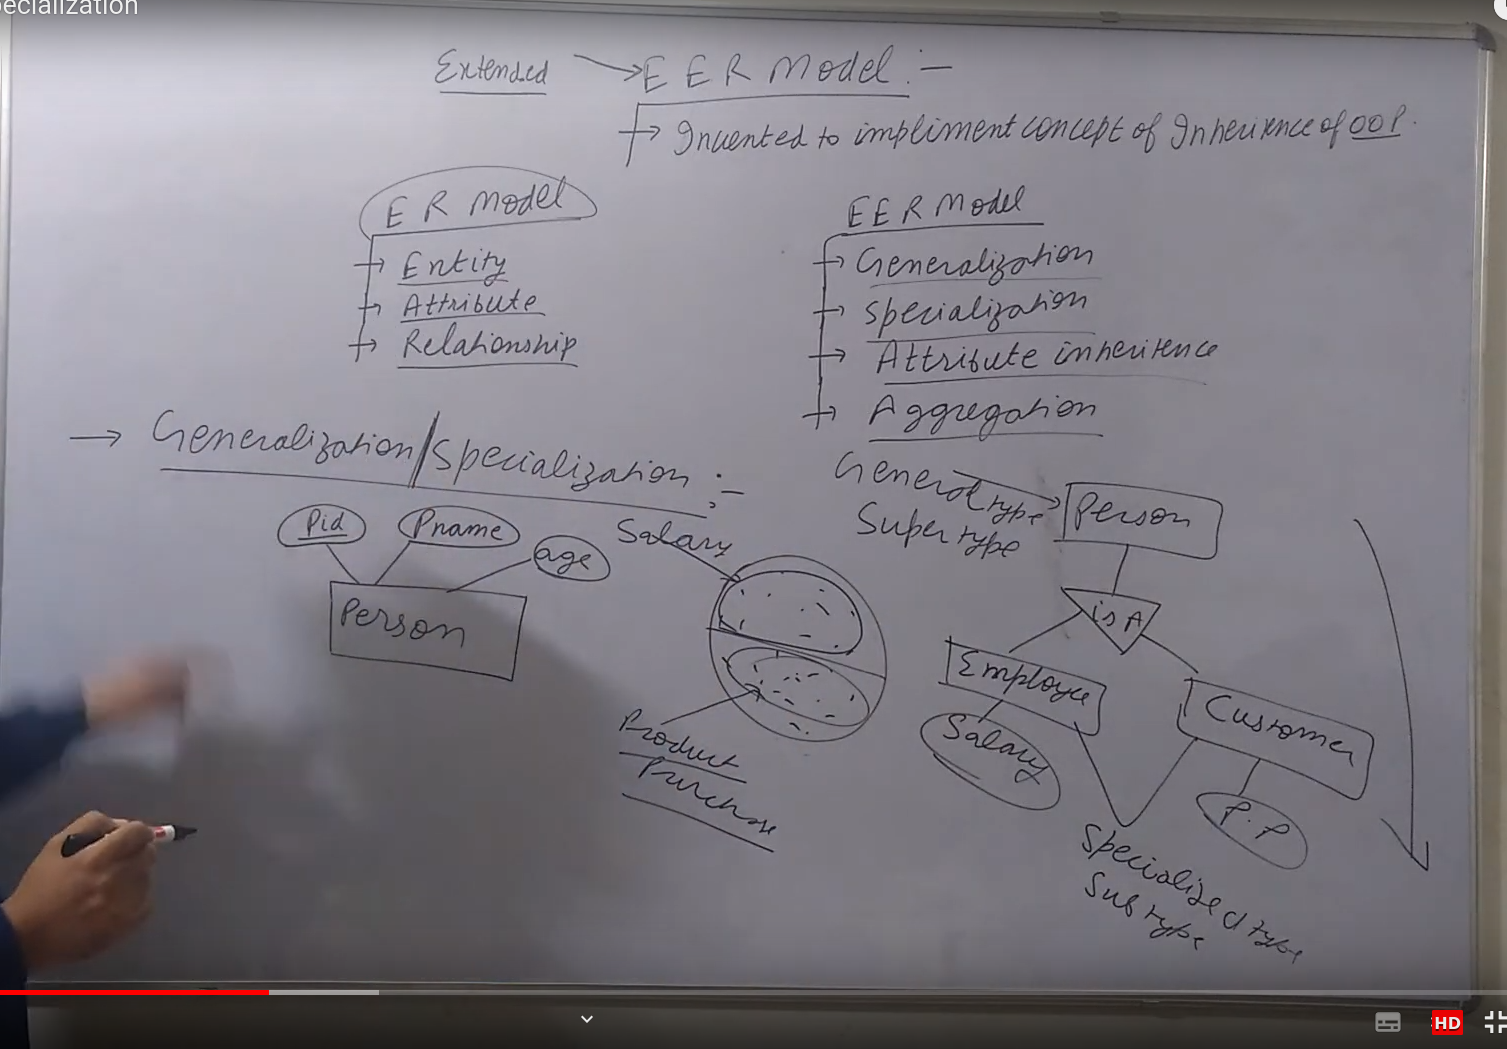 ecialization
Extended → E E R Model :-
→ Invented to impliment concept of Inheritence of OOP.
E R Model
→ Entity
→ Attribute
→ Relationship
E E R Model
→ Generalization
→ Specialization
→ Attribute inheritence
→ Aggregation
→ Generalization/Specialization :-
Pid
Pname
age
Person
Salary
Product
Purchase
General type
Super type
Person
is A
Employee
Customer
Salary
P.P
Specialized type
Sub type
HD